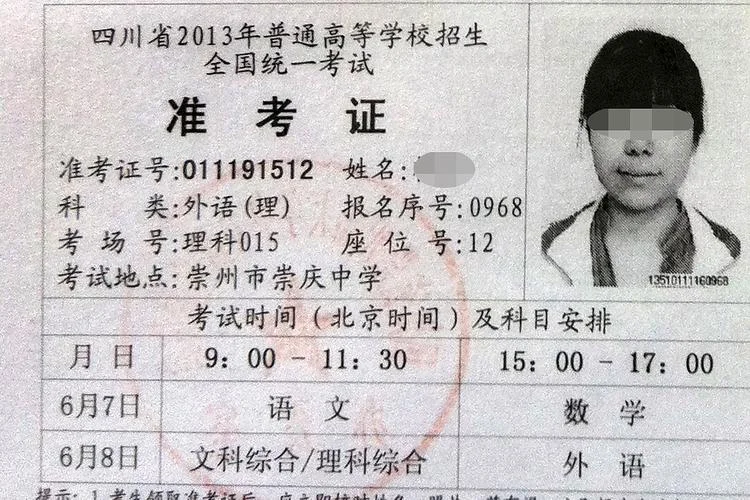 四川省2013年普通高等学校招生
全国统一考试
准考证
准考证号:011191512 姓名:
科 类:外语(理) 报名序号:0968
考 场 号:理科015 座 位 号:12
考试地点:崇州市崇庆中学
13510111160968
考试时间(北京时间)及科目安排
月 日 9:00-11:30 15:00-17:00
6月7日 语 文 数 学
6月8日 文科综合/理科综合 外 语
提示:1.考生领取准考证后